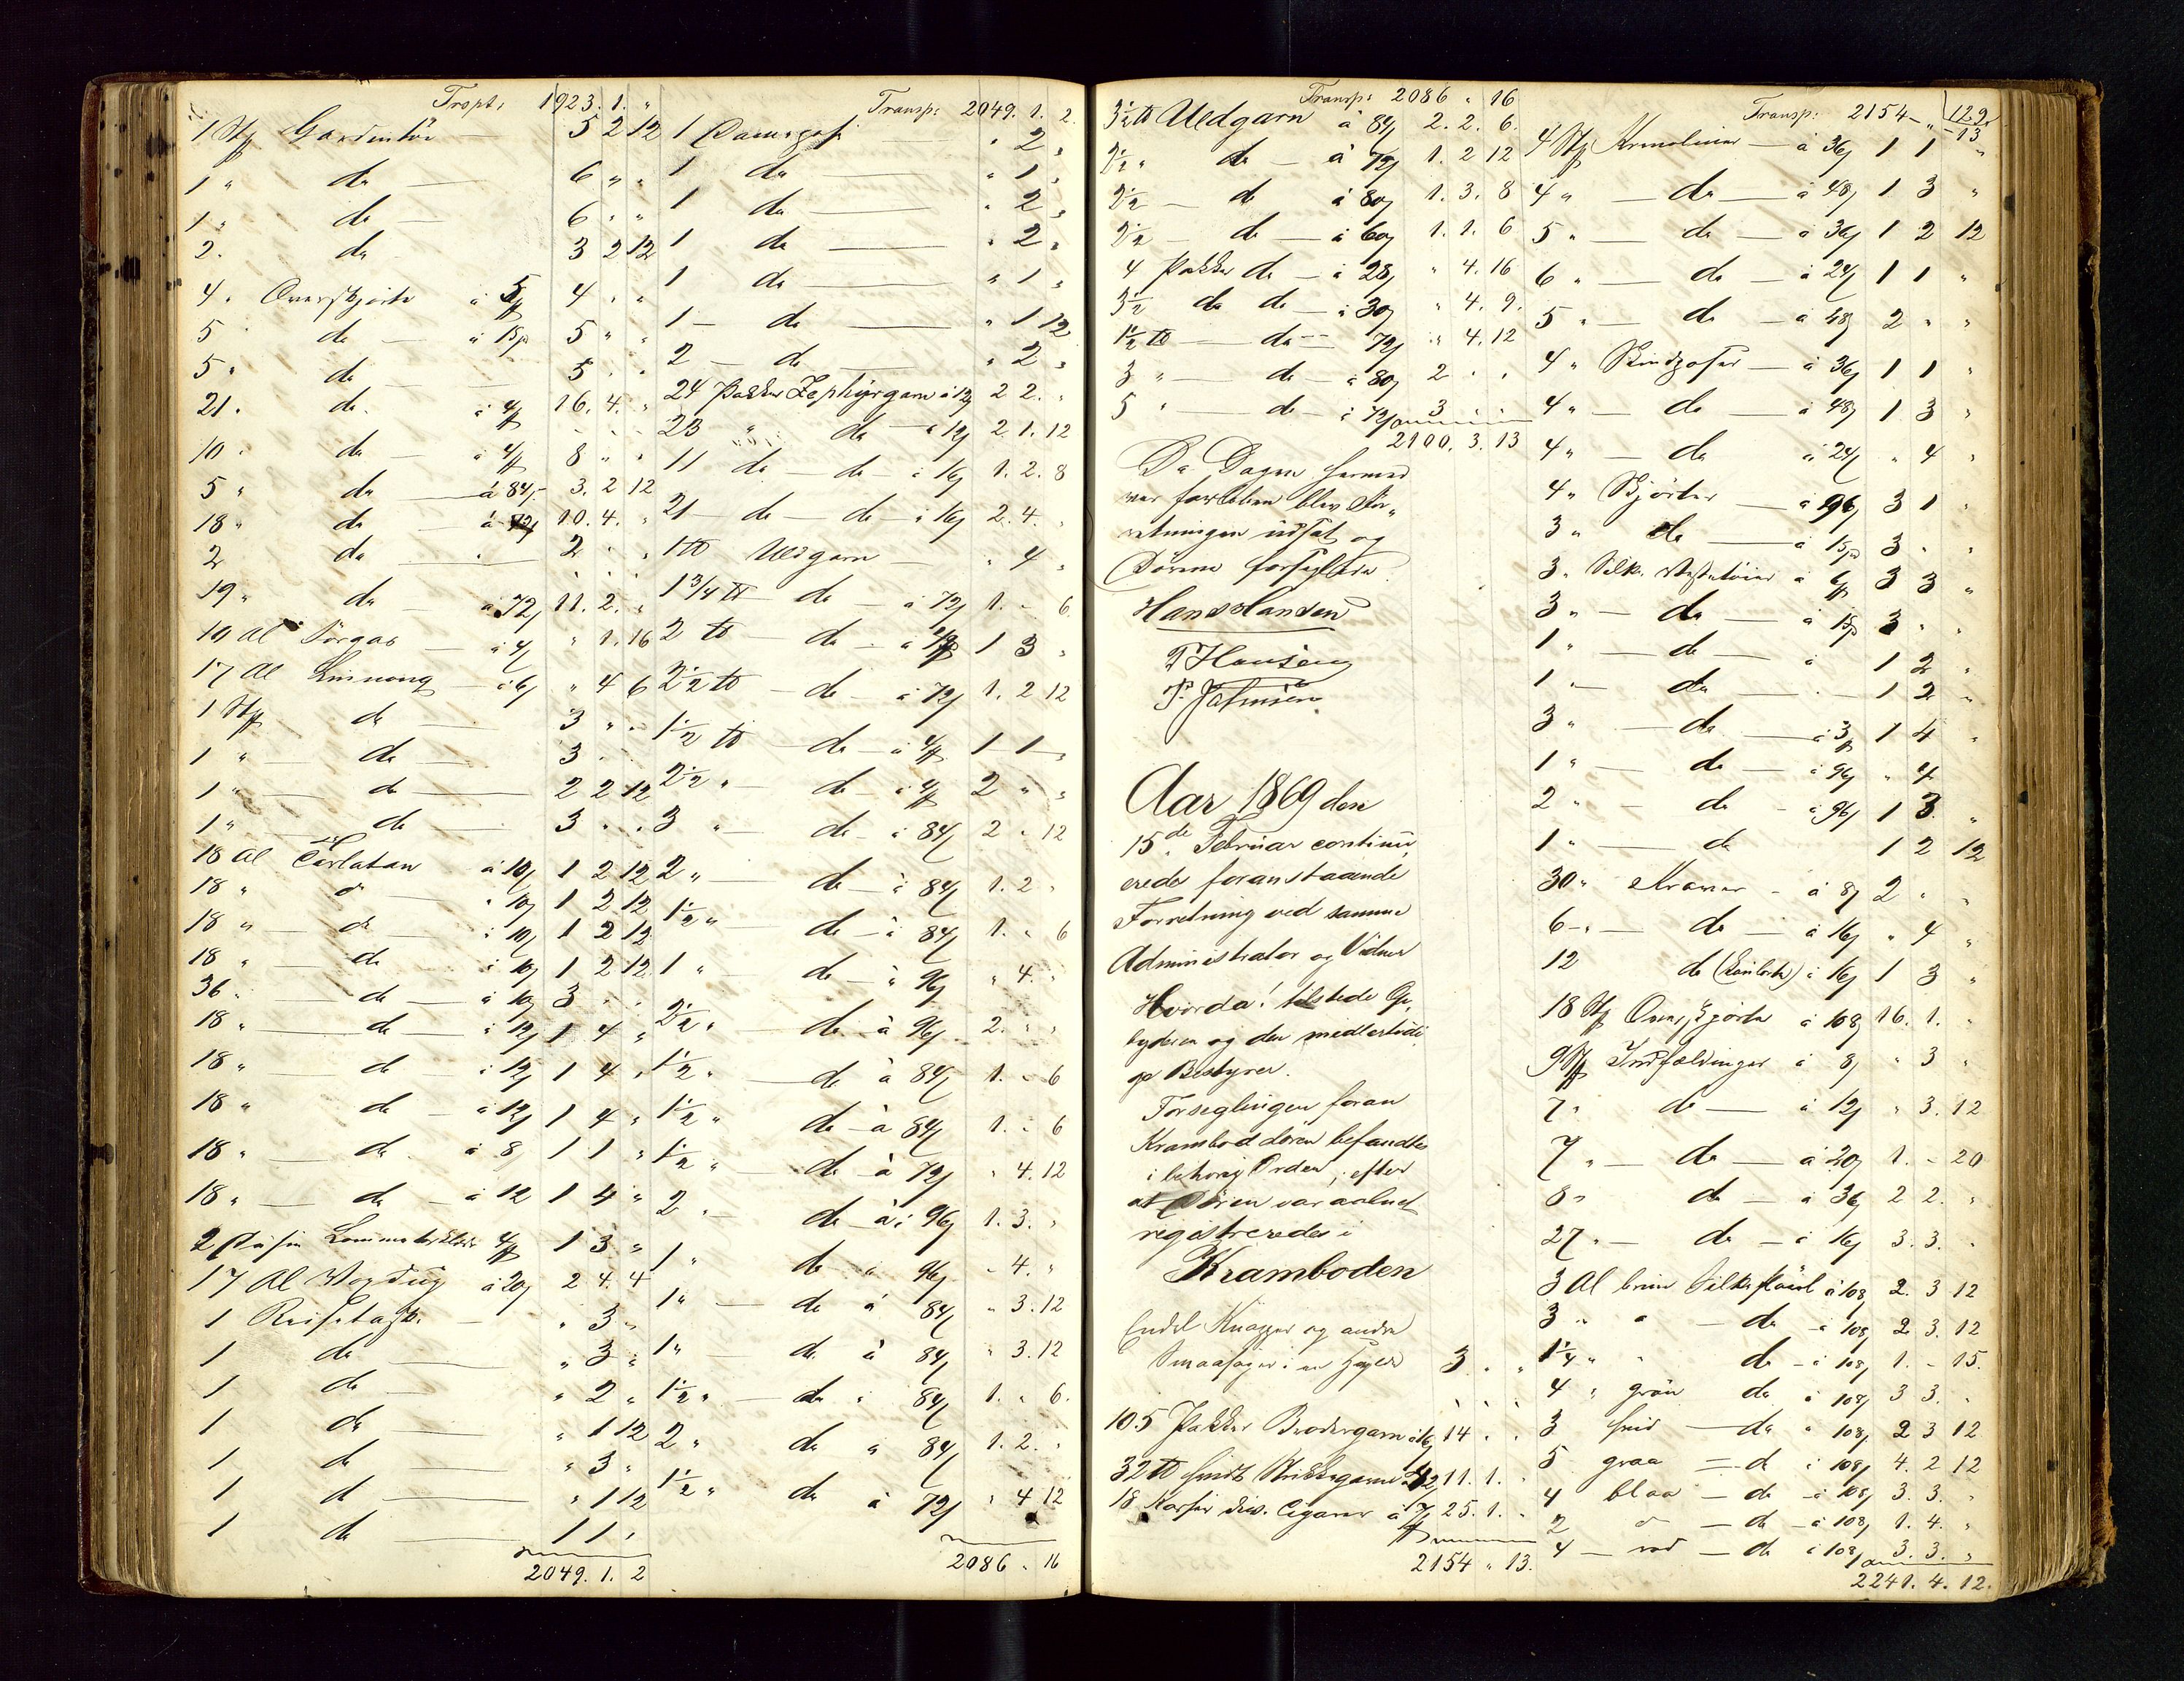 Trspt. 1923. 1. "
1 St Gardintöi — 5 2 12
1 " do — 6 " "
1 " do — 6 " "
2 . do 3 2 12
4 . Overskjorte à 5 4 " "
5 do — à 1 Sp 5 " "
5 . do — 5 " "
21 . do . à 4 16. 4. "
10 . do — à 4 8 " "
5 " do — à 84 3. 2 12
18 " do — à 72 10. 4. "
2 do — 2 " "
19 " do — à 72 11. 2. "
10 Al — à 4 " 1. 16
17 Al — à 6 " 4 6
1 St do — 3 " "
1 " — do — 3 "
1 " — do — 2 2 12
1 " — do — 3 " "
18 Al Tarlatan à 10 1 2 12
18 " do — " 10 1 2 12
18 " — do — à 10 1 2 12
18 " — do à 10 1 2 12
36 " — do — à 10 3 " "
18 " — do — à 12 1 4 "
18 " — do — à 12 1 4 "
18 " do — à 12 1 4 "
18 " — do . à 8 1 1 "
18 " — do — à 12 1 4 "
2 Dusin Lommetørklær 1 3 "
17 Al Voxdug à 20 2 4. 4
1 Reisetaske — " 3 "
1 do — " 3 "
1 do — " 2 "
1 do — " 1 12
1 do — " 3 "
1 do — " 1 12
1 do — 1 1 "
2049. 1. 2
Transp: 2049. 1. 2.
1 — " 2 "
1 do — " 1 "
1 do — " 2 "
1 do — " 2 "
1 do — " 1 "
1 — do — " 1 12
2 — do — " 2 "
24 Pakker Zephyrgarn à 12 2 2. "
23 " do — à 12 2. 1. 12
11 do — do — à 16 1. 2. 8
21 — do — do — à 16 2. 4. "
1 ℔ Uldgarn — " 4 "
1 3/4 ℔ do — à 72 1. " 6
2 ℔ — do — à 4 1 3 "
2 1/2 ℔ — do — à 72 1. 2 12
1 1/2 ℔ — do — à 4 1 1 "
2 1/2 " — do — à 4 2 " "
3 " — do — à 84 2 " 12
2 " — do — à 84 1. 2 "
1 1/2 " do — à 84 1. " 6
1 " do — à 96 " 4. "
2 1/2 " — do . à 96 2. " "
1 1/2 " — do à 84 1. " 6
1 1/2 " do — à 84 1. " 6
1 1/2 " — do à 72 " 4. 12
2 " — do à 96 1. 3. "
1 " do " 96 " 4. "
1 " — do à 84 " 3. 12
1 " — do à 84 " 3. 12
1 1/2 " — do à 84 1. " 6.
2 " do " 84 1. 2. "
1 1/2 " do à 72 " 4 12
2086 " 16
Transp: 2086 " 16
3 1/2 ℔ Uldgarn à 84 2. 2. 6.
2 1/2 " do — à 72 1. 2 12
2 1/2 — do à 80 1. 3. 8
2 1/2 — do — à 60 1. 1. 6
4 Pakker do — à 28 " 4. 16
3 1/2 do do — à 30 " 4. 9.
1 1/2 ℔ — do — 72 " 4. 12
3 " — do — à 80 2 " "
5 " — do — à 72 3 " "
2100. 3. 13
Da Dagen hermed
var forløben blev For„
retningen udsat og
Dørene forseglede.
Hans Hansen
P Hansen
P.
Aar 1869 den
15de Februar continu„
erede foranstaaende
Forretning ved samme
Administrator og Vidner
Hvorda! tilstede Ge„
byderen og den midlertidi
ge Bestyrer.
Forseglingen foran
Kramboddøren befandtes
i behørig Orden; efter
at Døren var aabnet
registreredes i
Kramboden
Endel Knapper og andre
Smaasager i en Hylde 3 . "
105 Pakker Brodergarn à 16 14 " "
32 ℔ hvidt Strikkegarn 42 11. 1. "
18 Kasser div. Cigarer à 7 25. 1. "
2154 " 13.
Transp: 2154 — " 12 2
— 13
4 St Krinoliner — à 36 1 1 "
4 " — do — à 48 1 3 "
5 " — do — à 36 1 2 12
6 " — do — à 24 1 1 "
5 " — do — à 48 2 " "
4 " — à 36 1 1 "
4 " — do — à 48 1 3 "
4 " — do à 24 " 4 "
4 " Skjorter — à 96 3 1 "
3 " do — à 1 Sp 3 " "
3 " Silke à 6 3 3 "
3 " — do — à 1 Sp 3 " "
1 " — do — à 1 2 "
1 " — do — . — 1 2 "
3 " — do — à 3 1 4 "
1 " — do — à 96 " 4 "
2 " — do — à 96 1 3. "
1 " — do 1 2 12
30 " Kraver — à 8 2 " "
6 — " — do — à 16 " 4 "
12 do à 16 1 3 "
18 St Overskjorte à 108 16. 1. "
9 St Indfældinger à 8 " 3 "
7 " do — à 12 " 3. 12
7 " — do — à 20 1. — 20
8 " do — à 36 2 2. "
27 " — do — à 16 3. 3. "
3 Al brun Silkefløiel à 108 2. 3 12
3 " " — do — à 108 2 3. 12
1 1/4 " " do — à 108 1. — 15.
4 " grøn do à 108 3 3. "
3 hvid — do " 108 2 3 12
5 graa — do à 108 4. 2 12
4 blaa — do — à 108 3. 3. "
2 do — do — à 108 1. 4. "
4 — rød — do à 108 3. 3. "
2241. 4. 12.